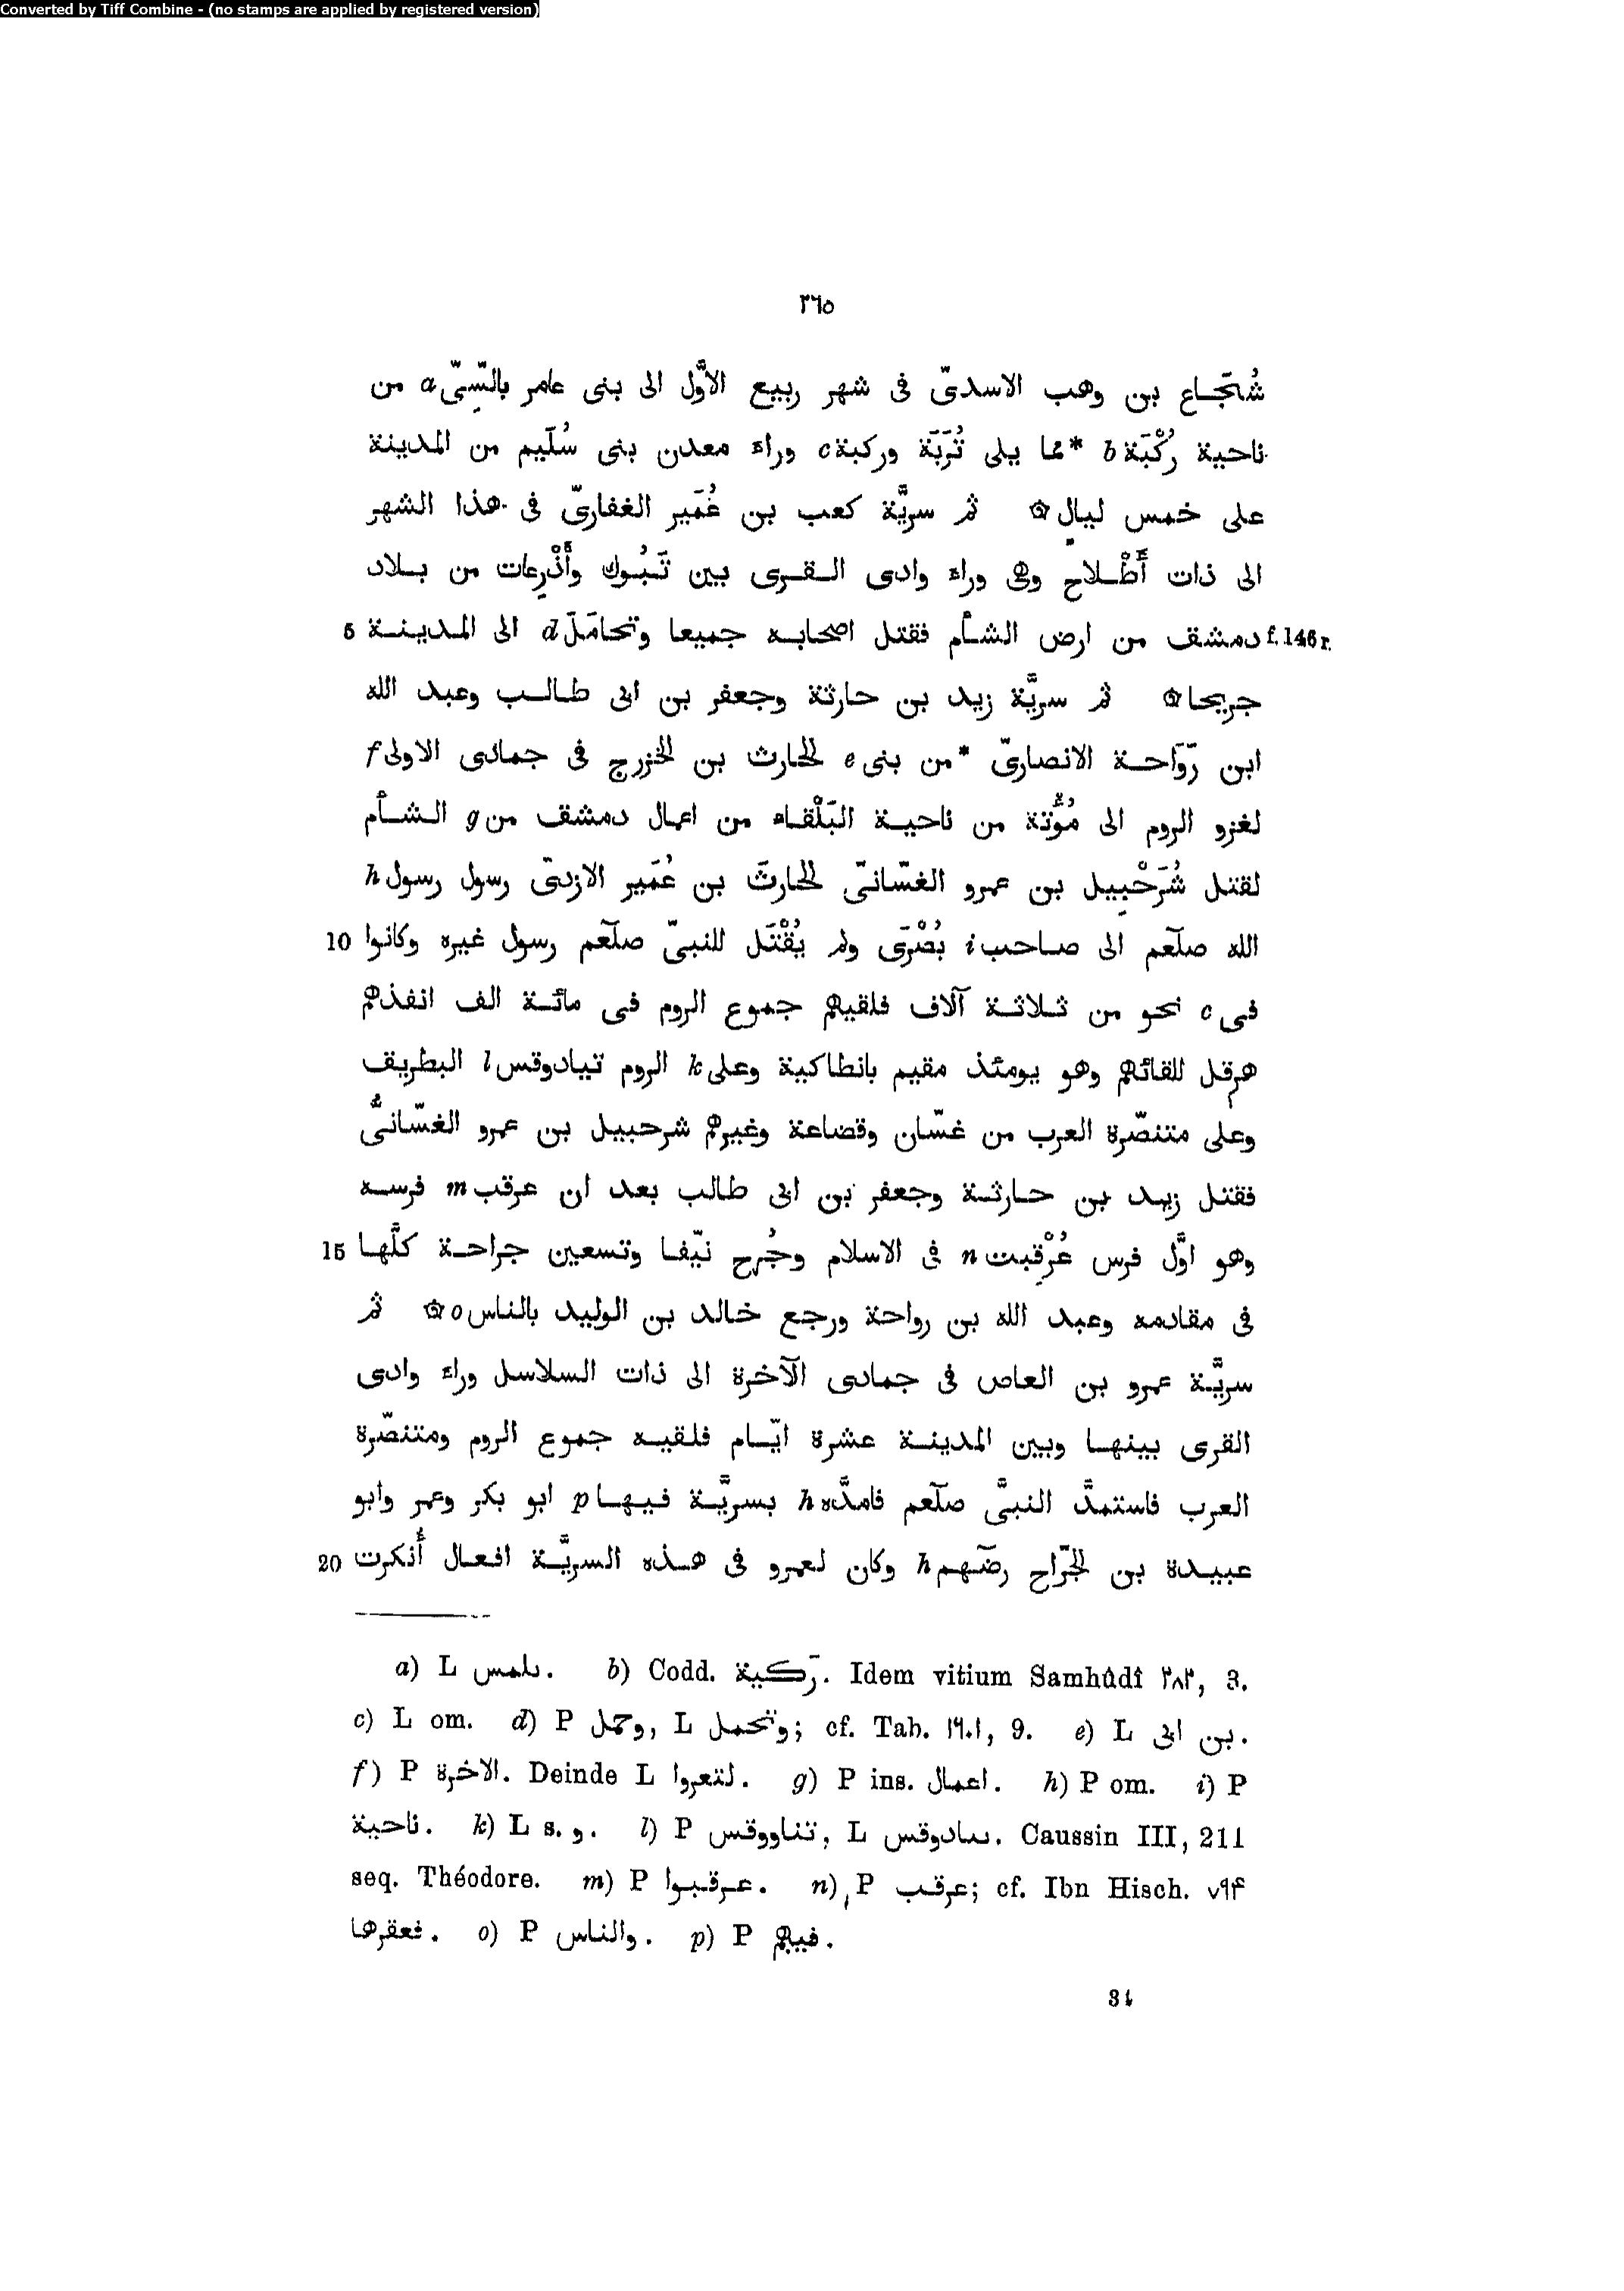 Converted by Tiff Combine - (no stamps are applied by registered version)
٢٦٥
شُجَاع بن وهب الاسدىّ فى شهر ربيع الاوَّل الى بنى عامر بالسِّىّ a من
ناحية رُكْبَة b *مما يلى تُرَبَة وركبة c وراء معدن بنى سُلَيم من المدينة
على خمس ليالٍ ۞ ثم سريَّة كعب بن عُمَير الغفارىّ فى هذا الشهر
الى ذات أَطْلاح وهى وراء وادى القرى بين تَبُوك وأَذْرِعات من بلاد
5 دمشق من ارض الشأم فقتل اصحابه جميعا وتحامَلَ d الى المدينة f. 146 r.
جريحا ۞ ثم سريَّة زيد بن حارثة وجعفر بن ابى طالب وعبد الله
ابن رَوَاحة الانصارىّ *من بنى e الحارث بن الخزرج فى جمادى الاولى f
لغزو الروم الى مُؤْتة من ناحية البَلْقاء من اعمال دمشق من g الشأم
لقتل شُرَحْبِيل بن عمرو الغسّانىّ الحارثَ بن عُمَير الازدىّ رسول رسول h
10 الله صلّعم الى صاحب i بُصْرَى ولم يُقْتَل للنبىّ صلّعم رسول غيره وكانوا
فى c نحو من ثلاثة آلاف فلقيهم جموع الروم فى مائة الف انفذهم
هرقل للقائهم وهو يومئذ مقيم بانطاكية وعلى k الروم تيادوقس l البطريق
وعلى متنصّرة العرب من غسّان وقضاعة وغيرهم شرحبيل بن عمرو الغسّانىُّ
فقتل زيد بن حارثة وجعفر بن ابى طالب بعد ان عرقب m فرسه
15 وهو اوَّل فرس عُرْقِبت n فى الاسلام وجُرح نيّفا وتسعين جراحة كلَّها
فى مقادمه وعبد الله بن رواحة ورجع خالد بن الوليد بالناس o ۞ ثم
سريَّة عمرو بن العاص فى جمادى الآخرة الى ذات السلاسل وراء وادى
القرى بينها وبين المدينة عشرة ايّام فلقيه جموع الروم ومتنصّرة
العرب فاستمدَّ النبىَّ صلّعم فامدَّه h بسريَّة فيها p ابو بكر وعمر وابو
20 عبيدة بن الجرّاح رضّهم h وكان لعمرو فى هذه السريَّة افعال أُنكرت
a) L بلمس. b) Codd. رَكبة. Idem vitium Samhûdî ٢٨٢, 3.
c) L om. d) P وحمل, L وتحمل; cf. Tab. ١٦٠١, 9. e) L بن ابى.
f) P الاخرة. Deinde L لتعروا. g) P ins. اعمال. h) P om. i) P
ناحية. k) L s. و. l) P تناووقس, L سادوقس. Caussin III, 211
seq. Théodore. m) P عرقبوا. n) P عرقب; cf. Ibn Hisch. ٧٩٤
فعقرها. o) P والناس. p) P فيهم.
34